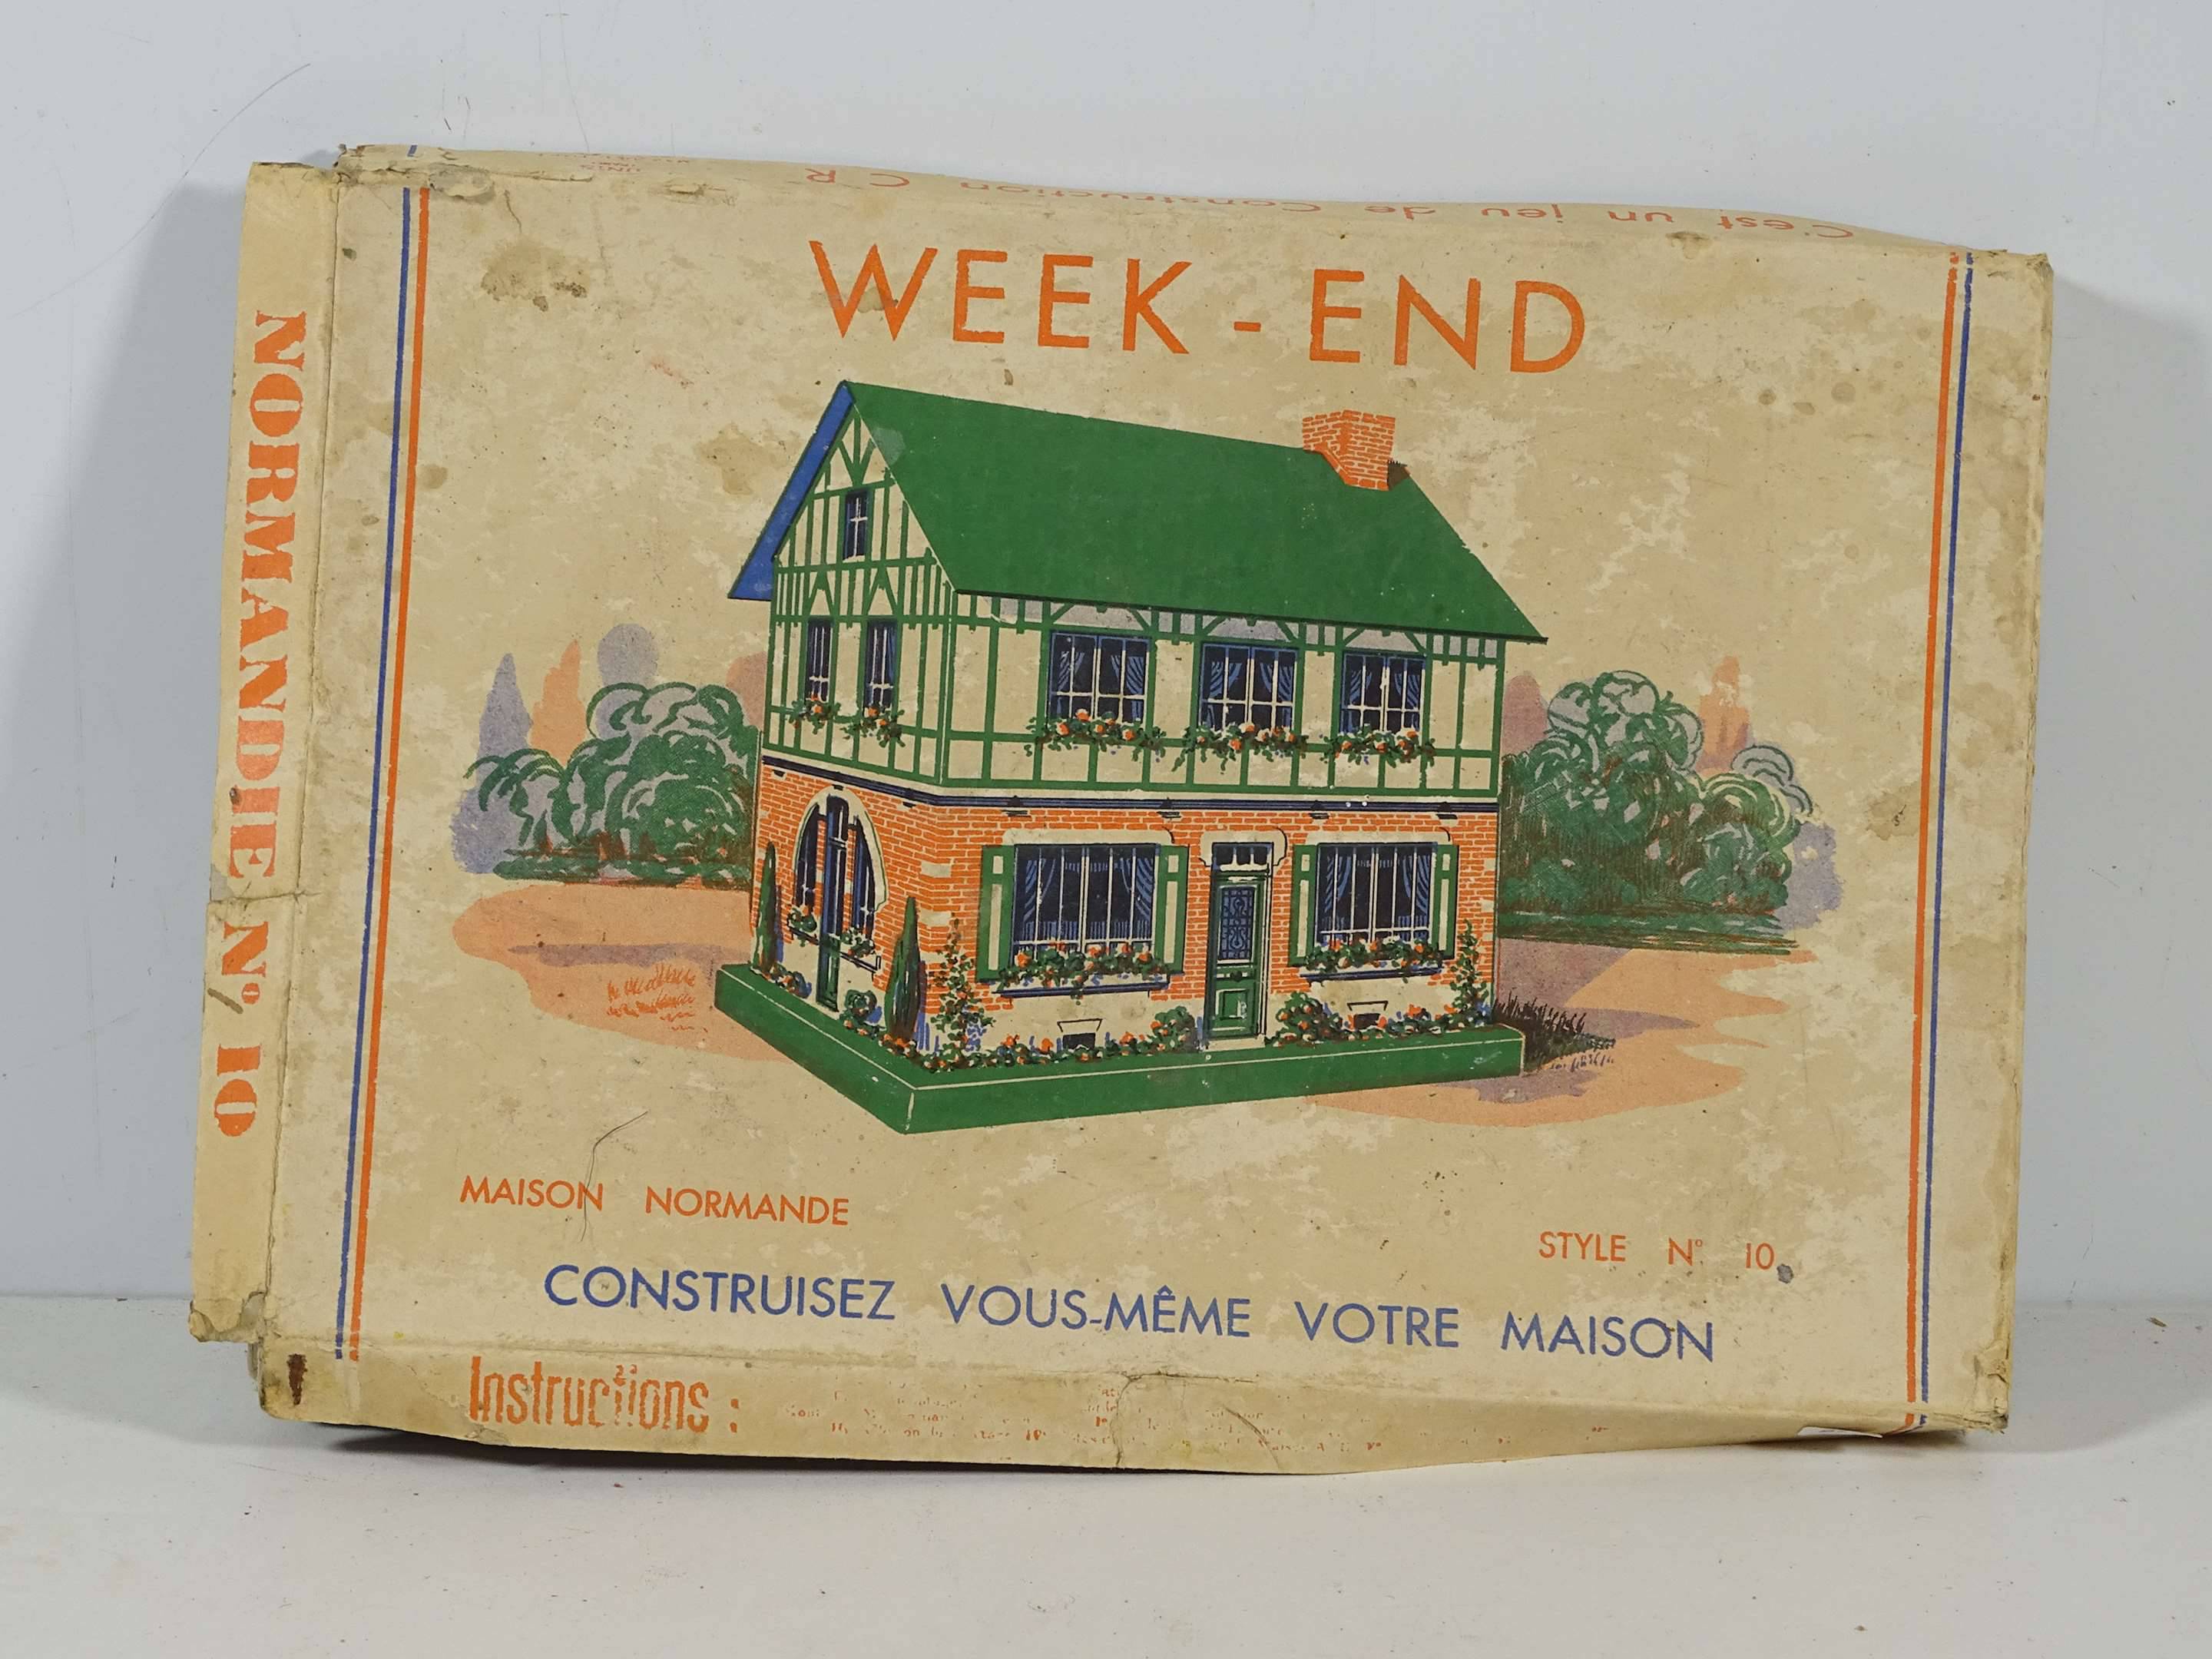 C'est un jeu de Construction C R
WEEK-END
NORMANDIE Nº 10
MAISON NORMANDE
STYLE Nº 10
CONSTRUISEZ VOUS-MÊME VOTRE MAISON
Instructions :